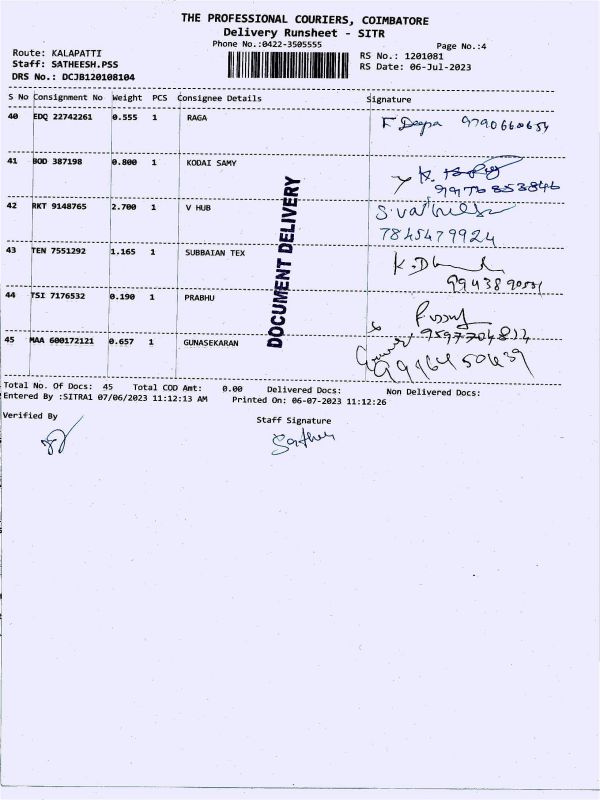 THE PROFESSIONAL COURIERS, COIMBATORE
Delivery Runsheet - SITR
Phone No.:0422-3505555 Page No.:4
Route: KALAPATTI RS No.: 1201081
Staff: SATHEESH.PSS RS Date: 06-Jul-2023
DRS No.: DCJB120108104
S No Consignment No Weight PCS Consignee Details Signature
40 EDQ 22742261 0.555 1 RAGA Deepa 9790660654
41 BOD 387198 0.800 1 KODAI SAMY
42 RKT 9148765 2.700 1 V HUB
7845479924
43 TEN 7551292 1.165 1 SUBBAIAN TEX
44 TSI 7176532 0.190 1 PRABHU
45 MAA 600172121 0.657 1 GUNASEKARAN
DOCUMENT DELIVERY
Total No. Of Docs: 45 Total COD Amt: 0.00 Delivered Docs: Non Delivered Docs:
Entered By :SITRA1 07/06/2023 11:12:13 AM Printed On: 06-07-2023 11:12:26
Verified By Staff Signature